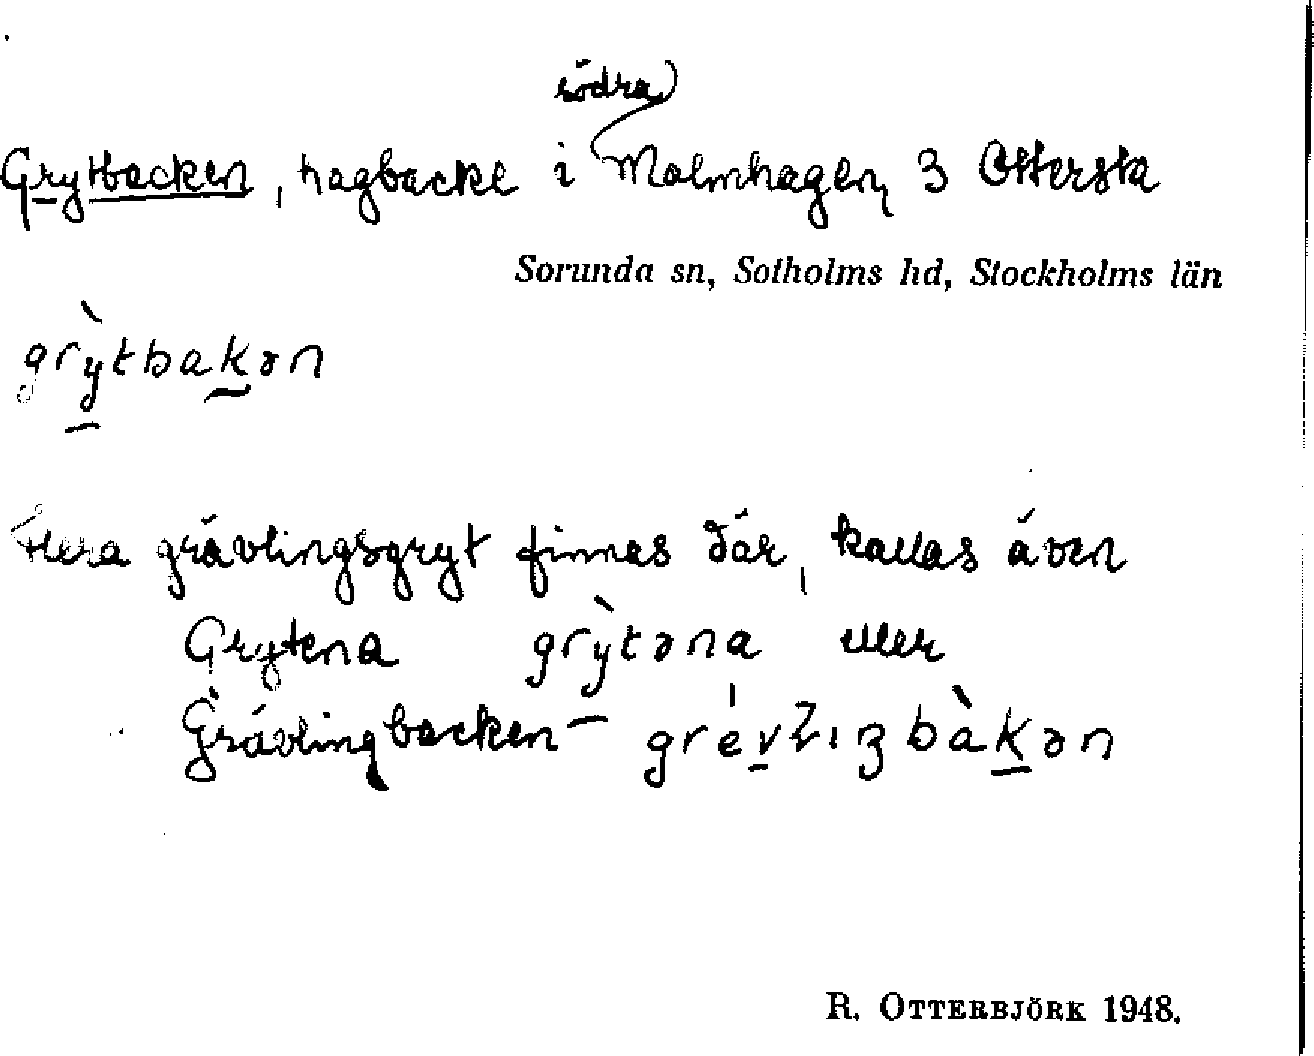 södra
Grytbacken, hagbacke i Malmhagen, 3 Ottersta
Sorunda sn, Sotholms hd, Stockholms län
grỳtbakən
Flera grävlingsgryt finnas där, kallas även
Grytena grỳtəna eller
Grävlingbacken grévlıŋbàkən
R. OTTERBJÖRK 1948.